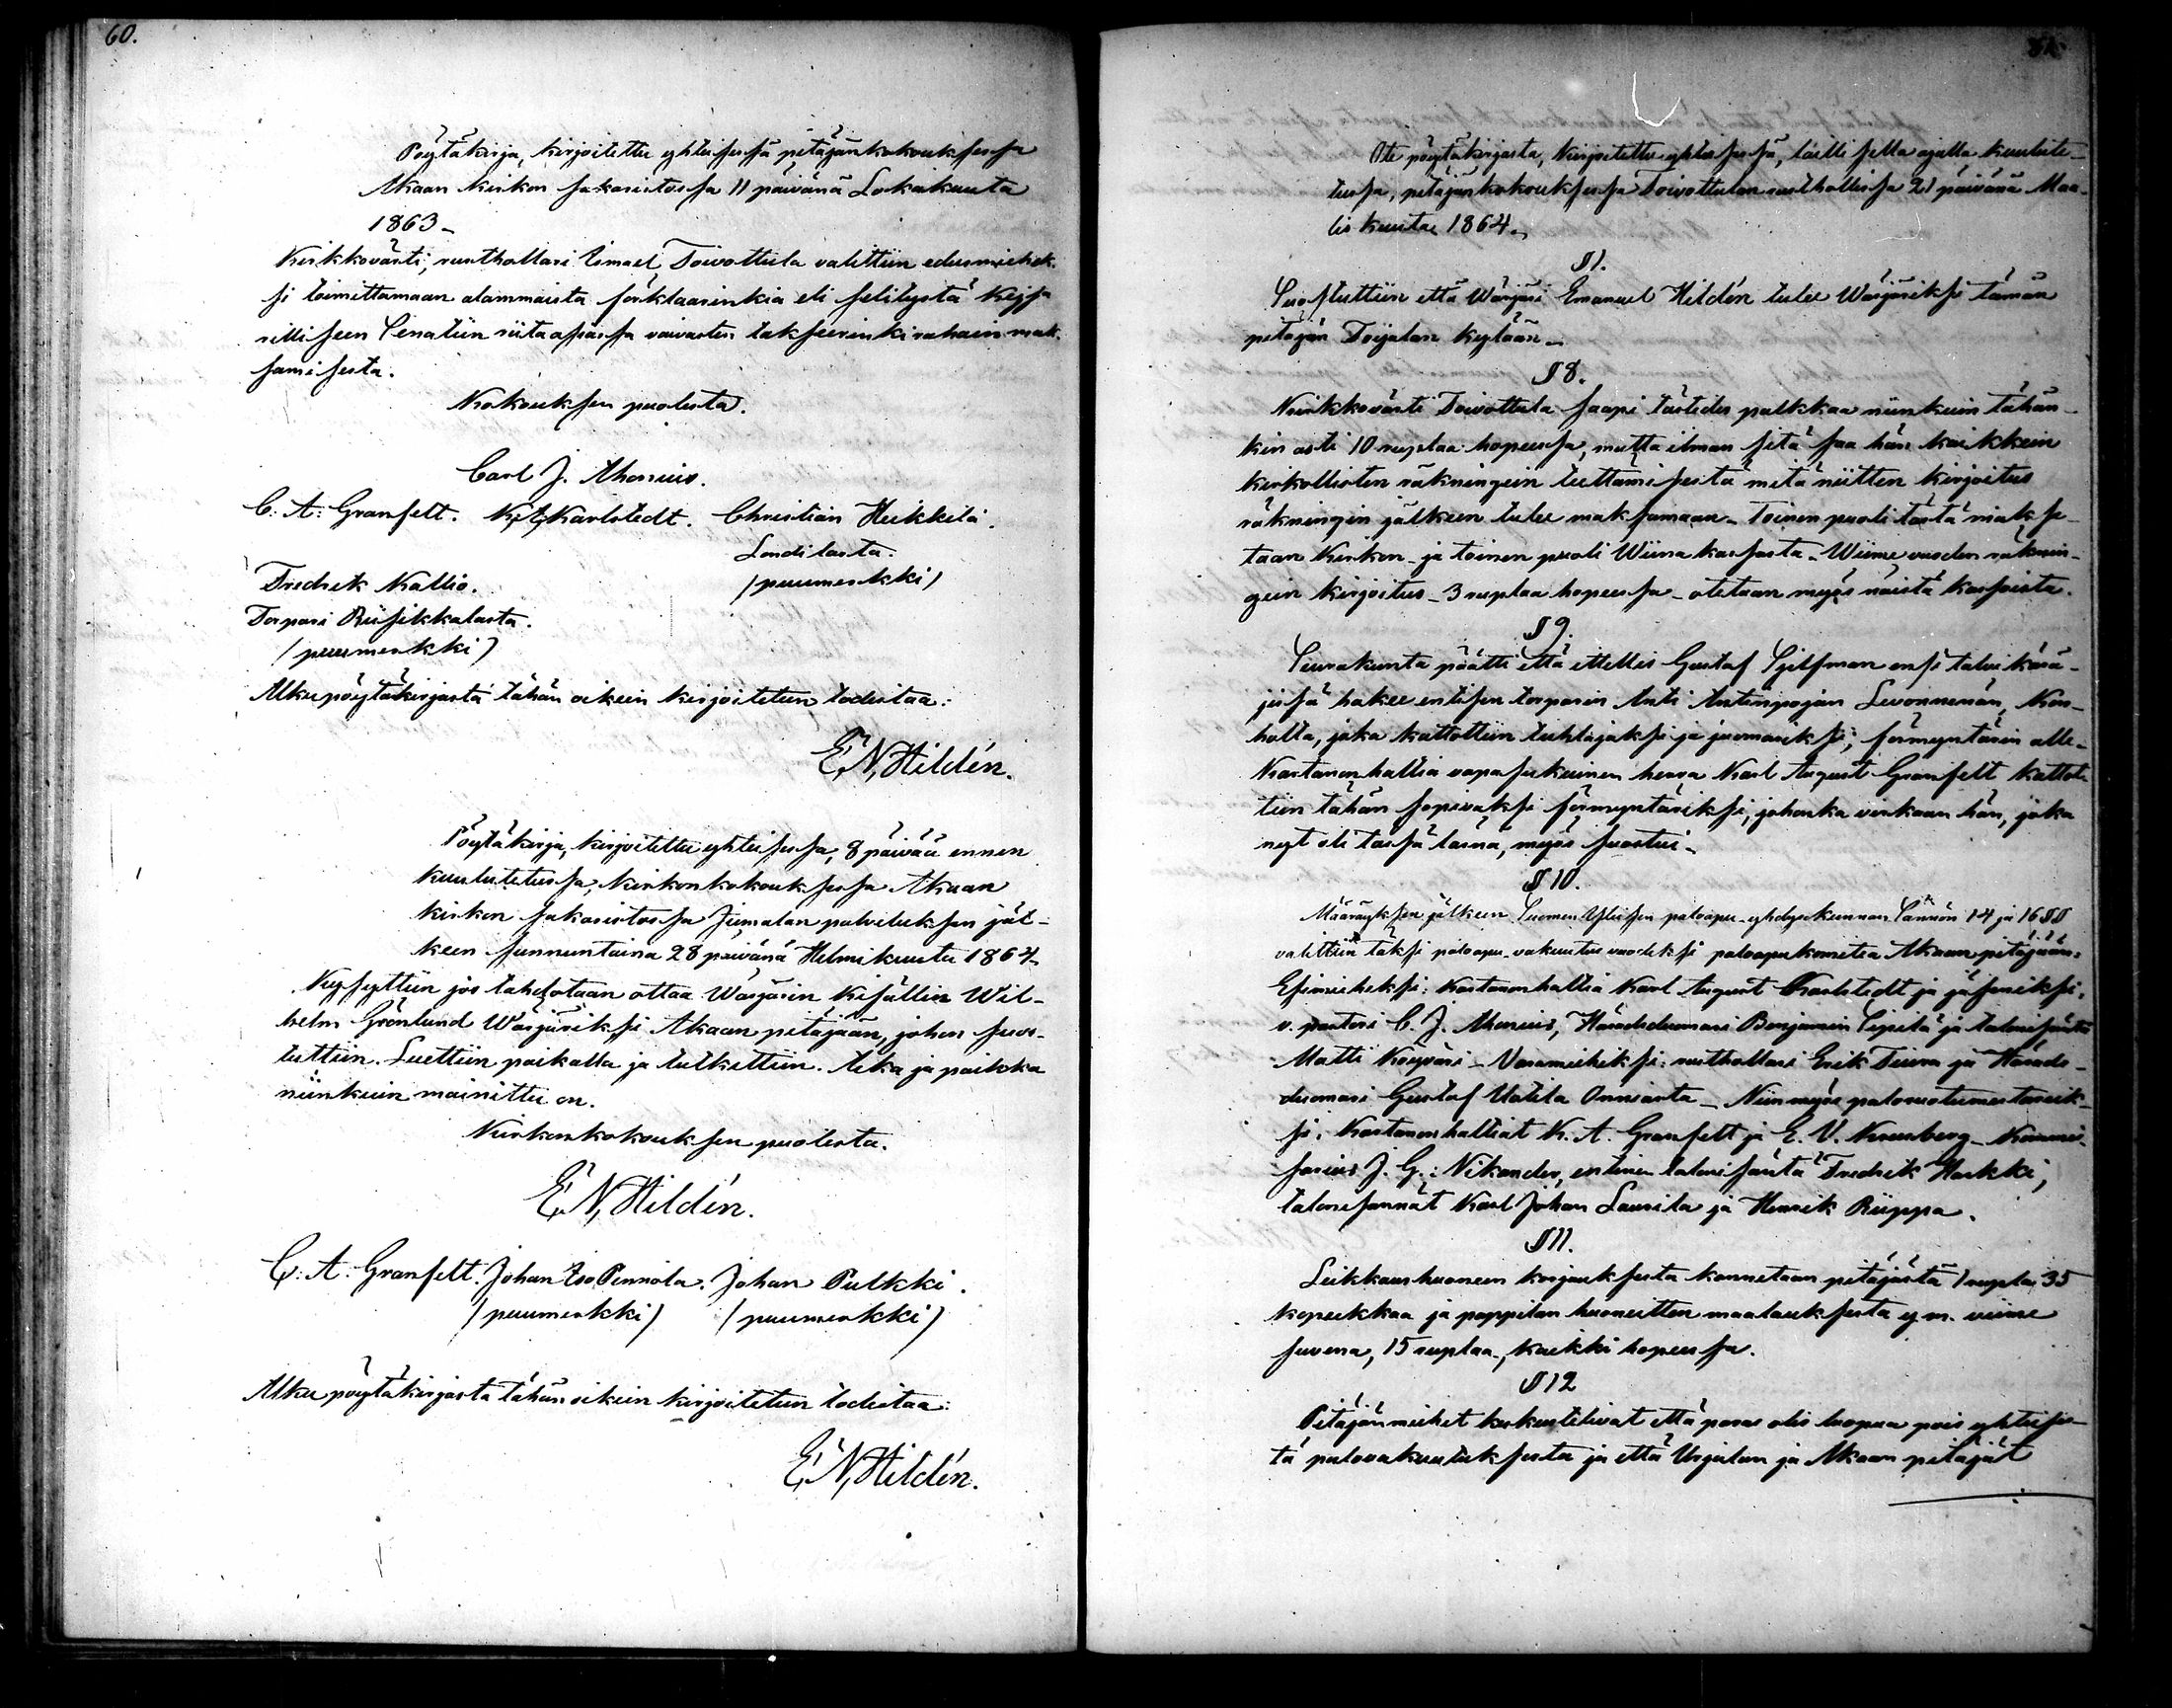 60.
Pöytäkirja, kirjoitettu yhteisessä pitäjänkokouksessa
Akaan kirkon sakaristossa 11 päivänä Lokakuuta
1863 –
Kirkkovärti, rusthollari Ismael Toivottula valittiin edusmiehek-
si toimittamaan alammaista förklaarinkia eli selitystä Kejsa
rilliseen Senatiin riitaasiassa vaivasten takseerinki rahain mak-
samisesta.
Kokouksen puolesta.
Carl J. Ahonius.
C: A: Granfelt. K. A. Karlstedt. Christian Heikkilä.
Sondilasta.
Fredrik Kallio. (puumerkki)
Torpari Riisikkalasta.
(puumerkki)
Alkupöytäkirjasta tähän oikein kirjoitetun todistaa:
E. N. Hildén.
Pöytäkirja, kirjoitettu yhteisessä, 8 päivää ennen
kuulutetussa, kirkonkokouksessa Akaan
kirkon sakaristossa Jumalan palveluksen jäl-
keen sunnuntaina 28 päivänä Helmikuuta 1864.
Kysyttiin jos tahdotaan ottaa Wärjärin kisällin Wil-
helm Grönlund Wärjäriksi Akaan pitäjään, johon suos-
tuttiin. Luettiin paikalla ja tutkittiin. Aika ja paikka
niinkuin mainittu on.
Kirkonkokouksen puolesta.
E. N. Hildén.
C: A: Granfelt. Johan Iso Pennola. Johan Pulkki.
(puumerkki) (puumerkki)
Alkupöytäkirjasta tähän oikein kirjoitetun todistaa:
E. N. Hildén.
61.
Ote pöytäkirjasta, kirjoitettu yhteisessä, laillisella ajalla kuulute-
tussa, pitäjänkokouksessa Toivottulan rusthollissa 21 päivänä Maa-
lis kuuta 1864.
§ 1.
Suostuttiin että Wärjäri Emanuel Hildén tulee Wärjäriksi tämän
pitäjän Toijalan kylään –
§ 8.
Kirkkovärti Toivottula saapi tästedes palkkaa niinkuin tähän-
kin asti 10 ruplaa hopeessa, mutta ilman sitä saa hän kaikkein
kirkollisten räkningein teettämisestä mitä niitten kirjoitus
räkningin jälkeen tulee maksamaan – Toinen puoli tästä makse-
taan Kirkon – ja toinen puoli Wiina kassasta – Wiime vuoden räknin-
gein kirjoitus – 3 ruplaa hopeessa – otetaan myös näistä kassoista.
§ 9.
Seurakunta päätti että ettellis Gustaf Sjelfman ensi talvikärä-
jissä hakee entisen torparin Anti Antinpojan Levonnemän, Kor-
holta, joka kattottiin tuhlajaksi ja juomariksi, förmyntärin alle –
Kartanonhaltia vapasukuinen herra Karl August Granfelt kattot-
tiin tähän sopivaksi förmyntäriksi, johonka virkaan hän, joka
nyt oli tässä läsnä, myös suostui –
§ 10.
Määräyksen jälkeen Suomen Yhteisen paloapu-yhdyskunnan Säännön 14 ja 16 §§
valittiin täksi paloapu-vakuutus vuodeksi paloapukomitea Akaan pitäjään:
Esimieheksi: kartanonhaltia Karl August Karlstedt ja jäseniksi:
v. pastori C. J. Ahonius, Häradsdomari Benjamin Sipilä ja talonisäntä
Matti Köyväri – Varamiehiksi: rusthollari Erik Tiura ja Härads-
duomari Gustaf Uotila Onniasta – Niin myös paloruotumestareik-
si: Kartanonhaltiat K. A. Granfelt ja E. V. Kreusberg – Kommi-
sarius J. G.: Nikander, entinen talonisäntä Fredrik Harkki,
talonisännät Karl Johan Laurila ja Henrik Riippa.
§ 11.
Leikkaushuoneen korjauksesta kannetaan pitäjästä 1 rupla 35
kopeekkaa ja pappilan huoneitten maalauksesta y.m. viime
suvena, 15 ruplaa, kaikki hopeessa.
§ 12
Pitäjänmiehet keskustelivat että paras olis luopua pois yhteises-
tä palovakuutuksesta ja että Urjalan ja Akaan pitäjät